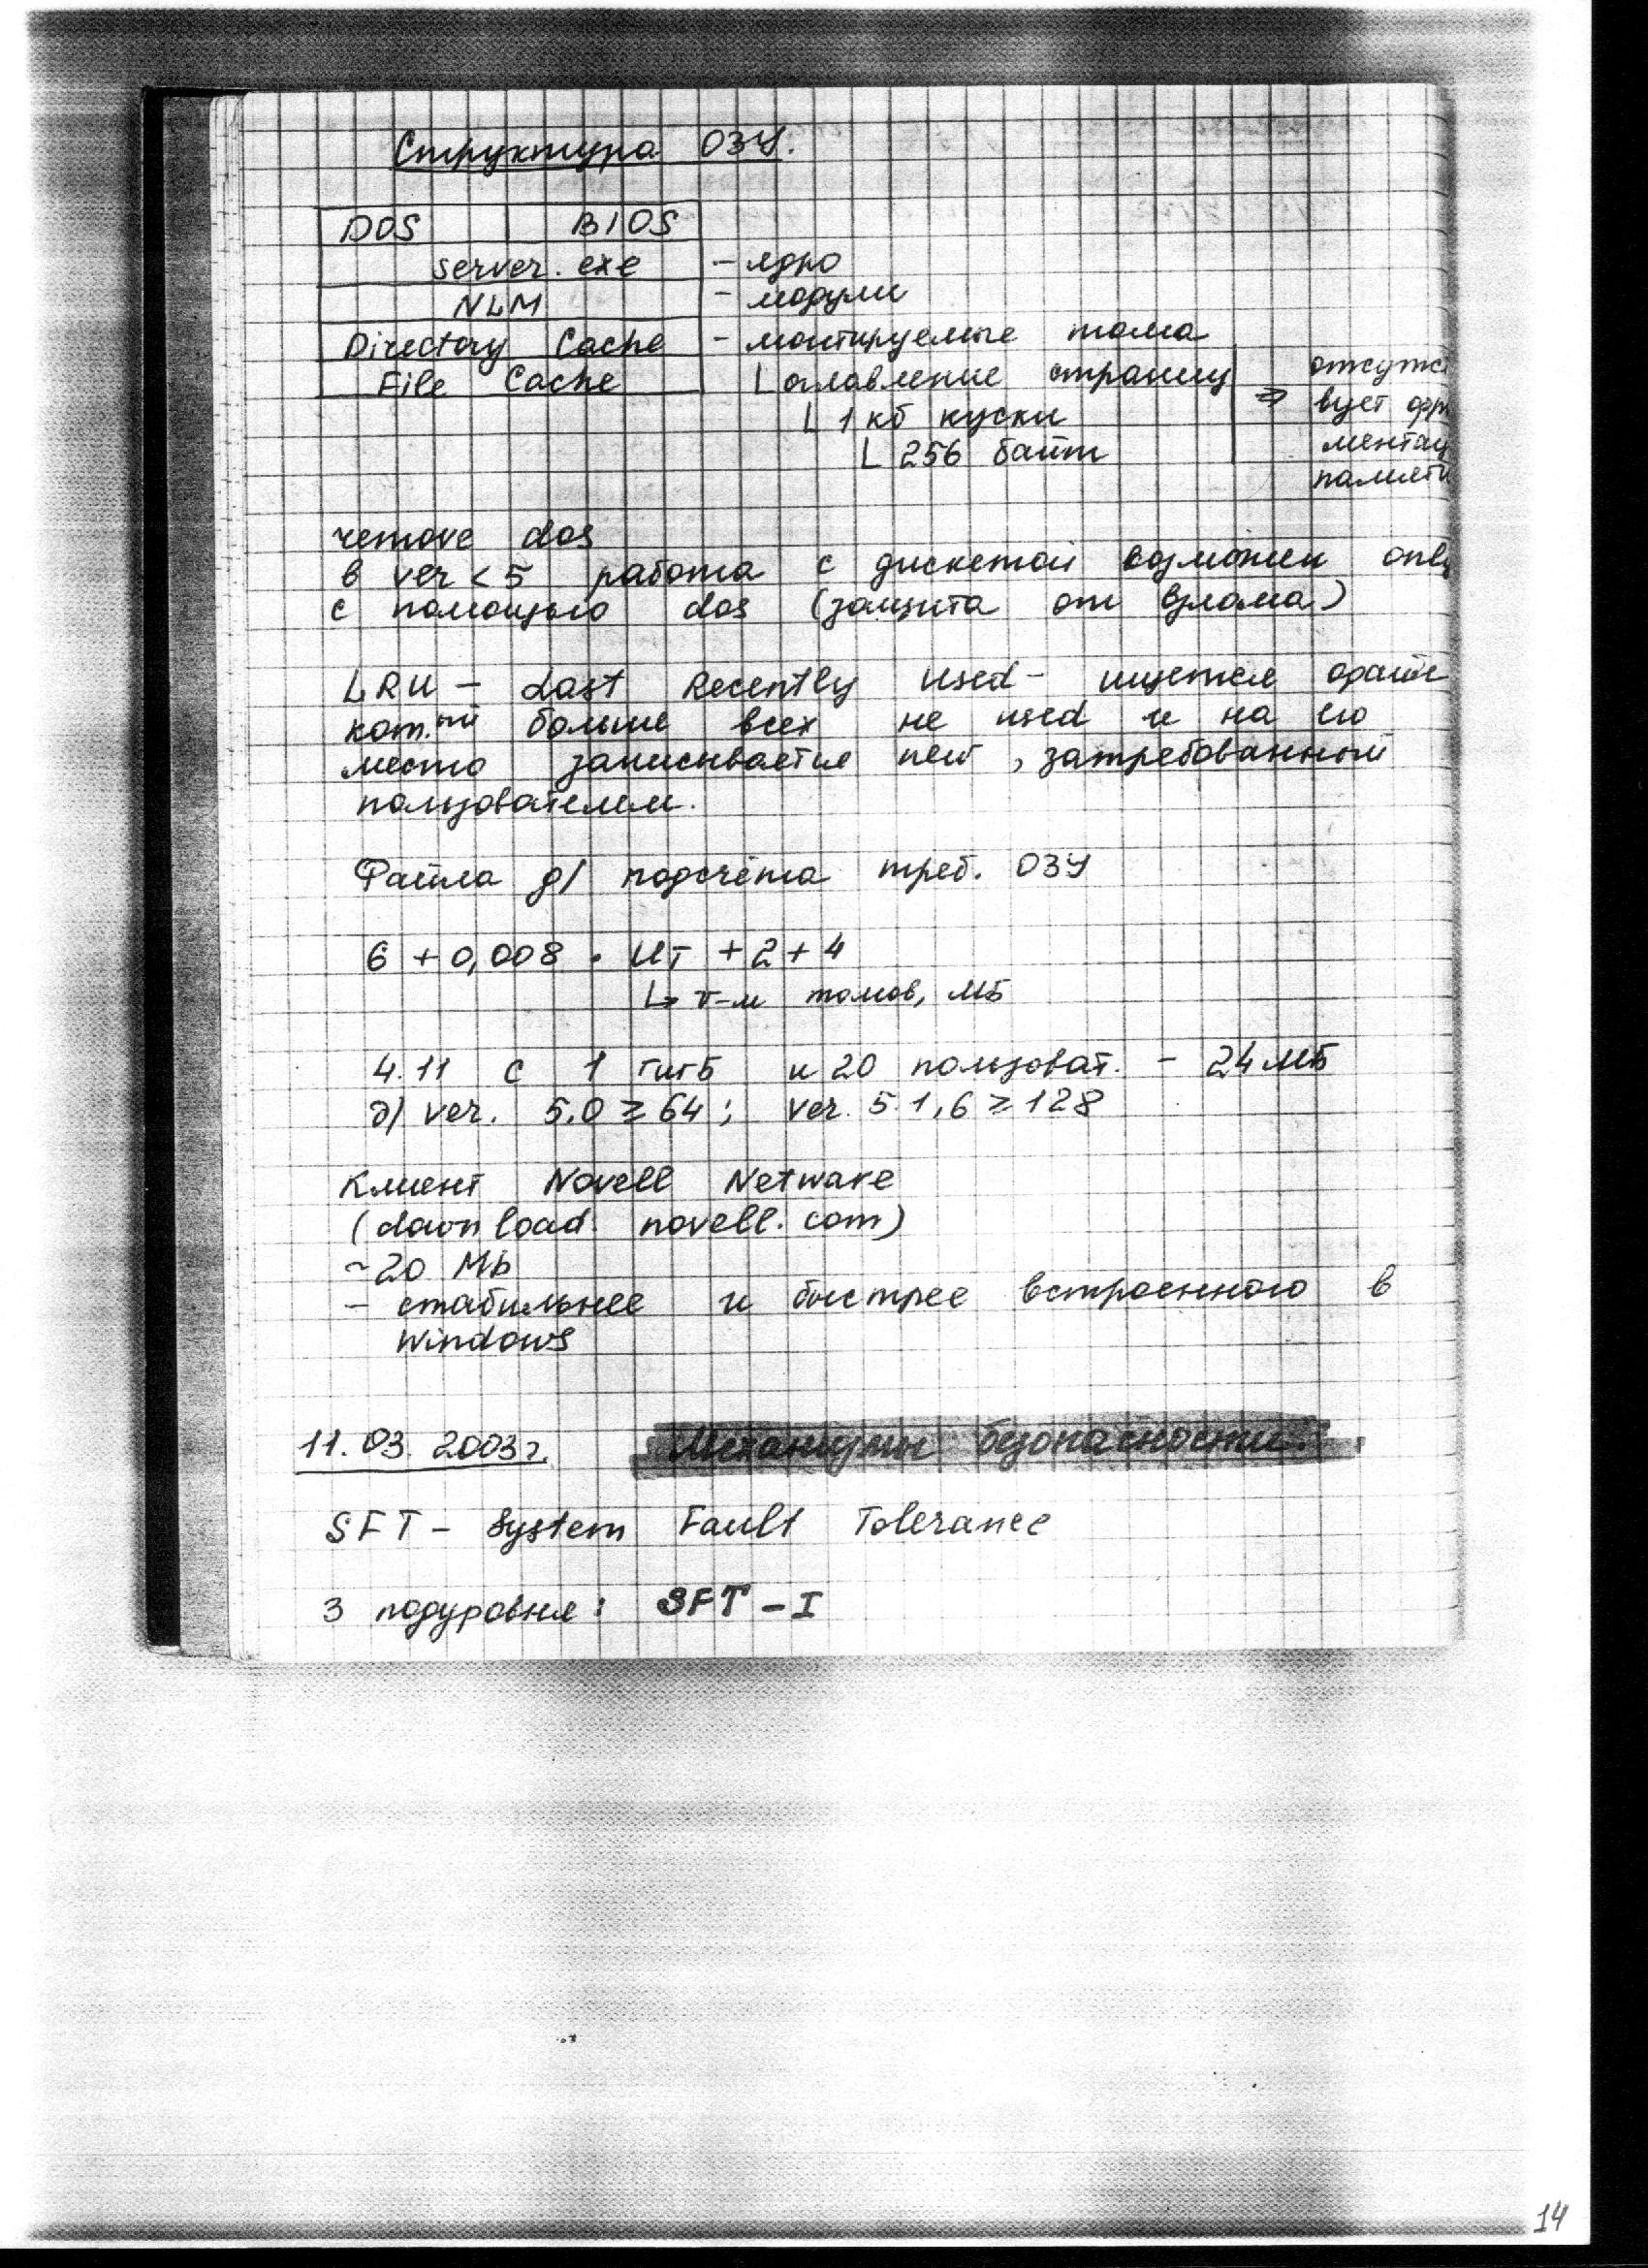 Структура ОЗУ.
DOS | BIOS
server.exe - ядро
NLM - модули
Directory Cache - монтируемые тома
File Cache L оглавление страниц отсутст
L 1 кб куски ⇒ вует фр
L 256 байт ментац
памяти
remove dos
в ver < 5 работа с дискетой возможен
с помощью dos (защита от взлома)
LRU - Last Recently Used - ищется файл
кот.ый больше всех не used и на его
место записывается new, затребованный
пользователем.
д/ подсчёта треб. ОЗУ
6 + 0,008 · + 2 + 4
томов, МБ
4.11 с 1 гигБ и 20 пользоват. - 24 МБ
д/ ver. 5.0 ≥ 64; ver. 5.1, 6 ≥ 128
Клиент Novell Netware
(download.novell.com)
~20 Mb
- стабильнее и быстрее встроенного в
Windows
11.03.2003г. Механизмы безопасности.
SFT - System Fault Tolerance
3 подуровня: SFT - I
14